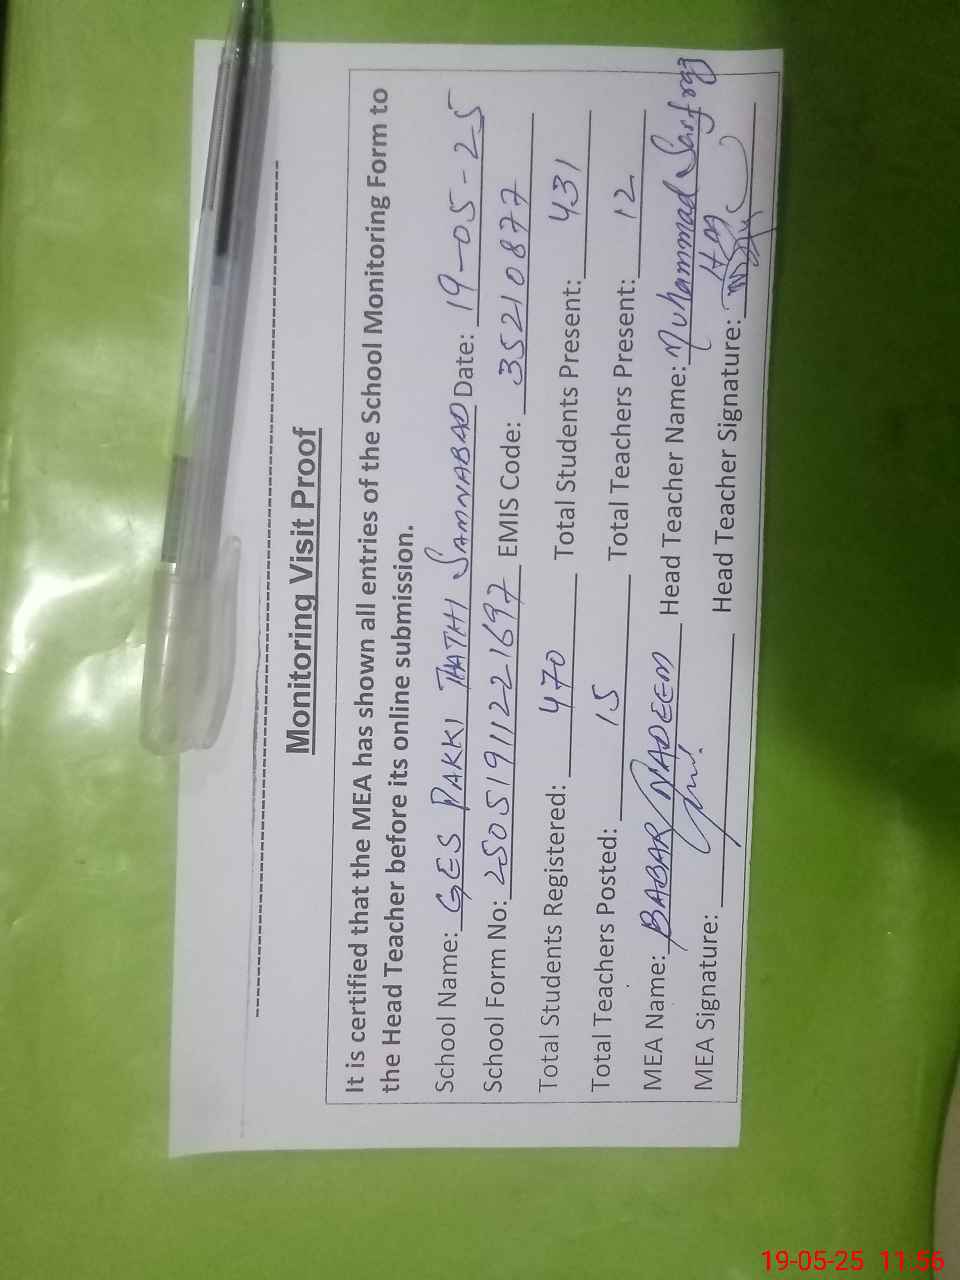 Monitoring Visit Proof
It is certified that the MEA has shown all entries of the School Monitoring Form to
the Head Teacher before its online submission.
School Name: GES PAKKI THATHI SAMNABAD Date: 19-05-25
School Form No: 250519112221697 EMIS Code: 35210877
Total Students Registered: 470 Total Students Present: 431
Total Teachers Posted: 15 Total Teachers Present: 12
MEA Name: BABAR NADEEM Head Teacher Name: Muhammad Sarfraz
MEA Signature: Head Teacher Signature:
19-05-25 11:56